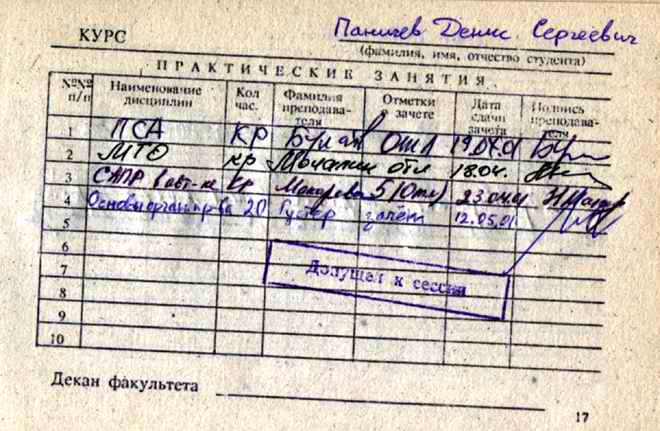 КУРС Паничев Денис Сергеевич
(фамилия, имя, отчество студента)
ПРАКТИЧЕСКИЕ ЗАНЯТИЯ
№№ п/п Наименование дисциплин Кол час. Фамилия преподавателя Отметки зачете Дата сдачи зачета Подпись преподавателя
1 ПСА КР Отл 19.04.01
2 МТО кр отл 18.04.
3 САПР в авт-ке Кр Макарова 5 (Отл) 23.04.01
4 Основы орган. пр-ва 20 Густер зачёт 12.05.01
5
6
7 Допущен к сессии
8
9
10
Декан факультета
17